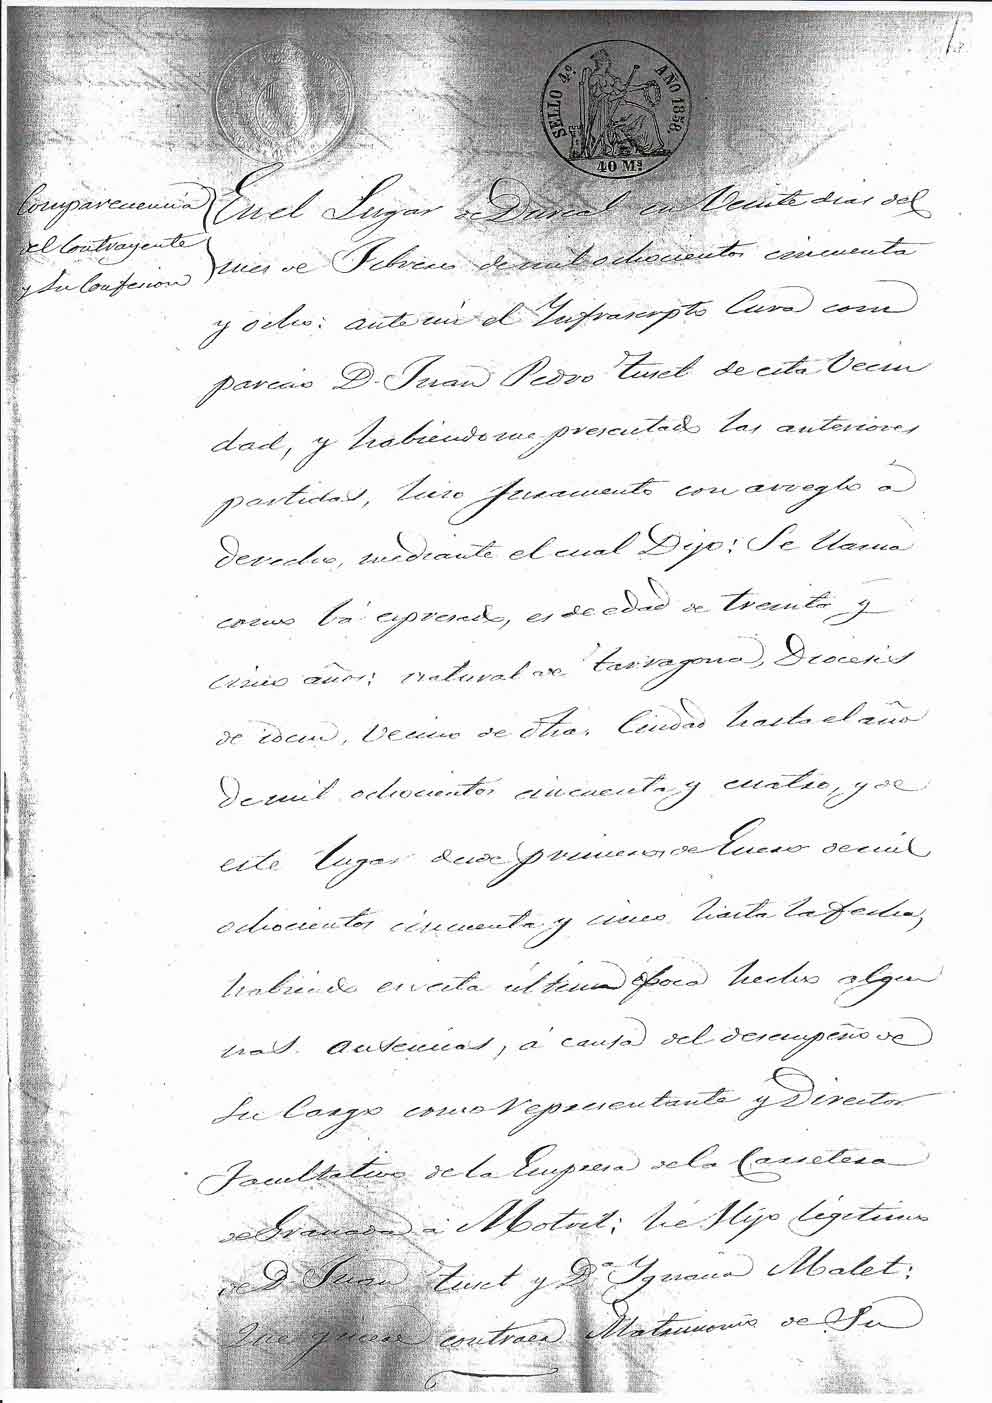 SELLO 4º AÑO 1858.
40 Ms
Comparecencia
del Contrayente
y Su Confesion
En el Lugar de Durcal en Veinte dias del
mes de Febrero de mil ochocientos cincuenta
y ocho: ante mi el Infrascripto Cura com
parecio D. Juan Pedro Tuset de esta Vecin
dad, y habiendome presentado las anteriores
partidas, hizo juramento con arreglo á
derecho, mediante el cual Dijo: Se llama
como vá espresado, es de edad de treinta y
cinco años: natural de Tarragona, Diocesis
de idem, Vecino de dha. Ciudad hasta el año
de mil ochocientos cincuenta y cuatro, y de
este lugar desde primeros de Enero de mil
ochocientos cincuenta y cinco hasta la fecha,
habiendo en esta última época hecho algu
nas ausencias, á causa del desempeño de
Su Cargo como Representante y Director
Facultativo de la Empresa de la Carretera
de Granada á Motril; hé Hijo legitimo
de D. Juan Tuset y Dª Ygnacia Malet:
Que quiere contraer Matrimonio de Su